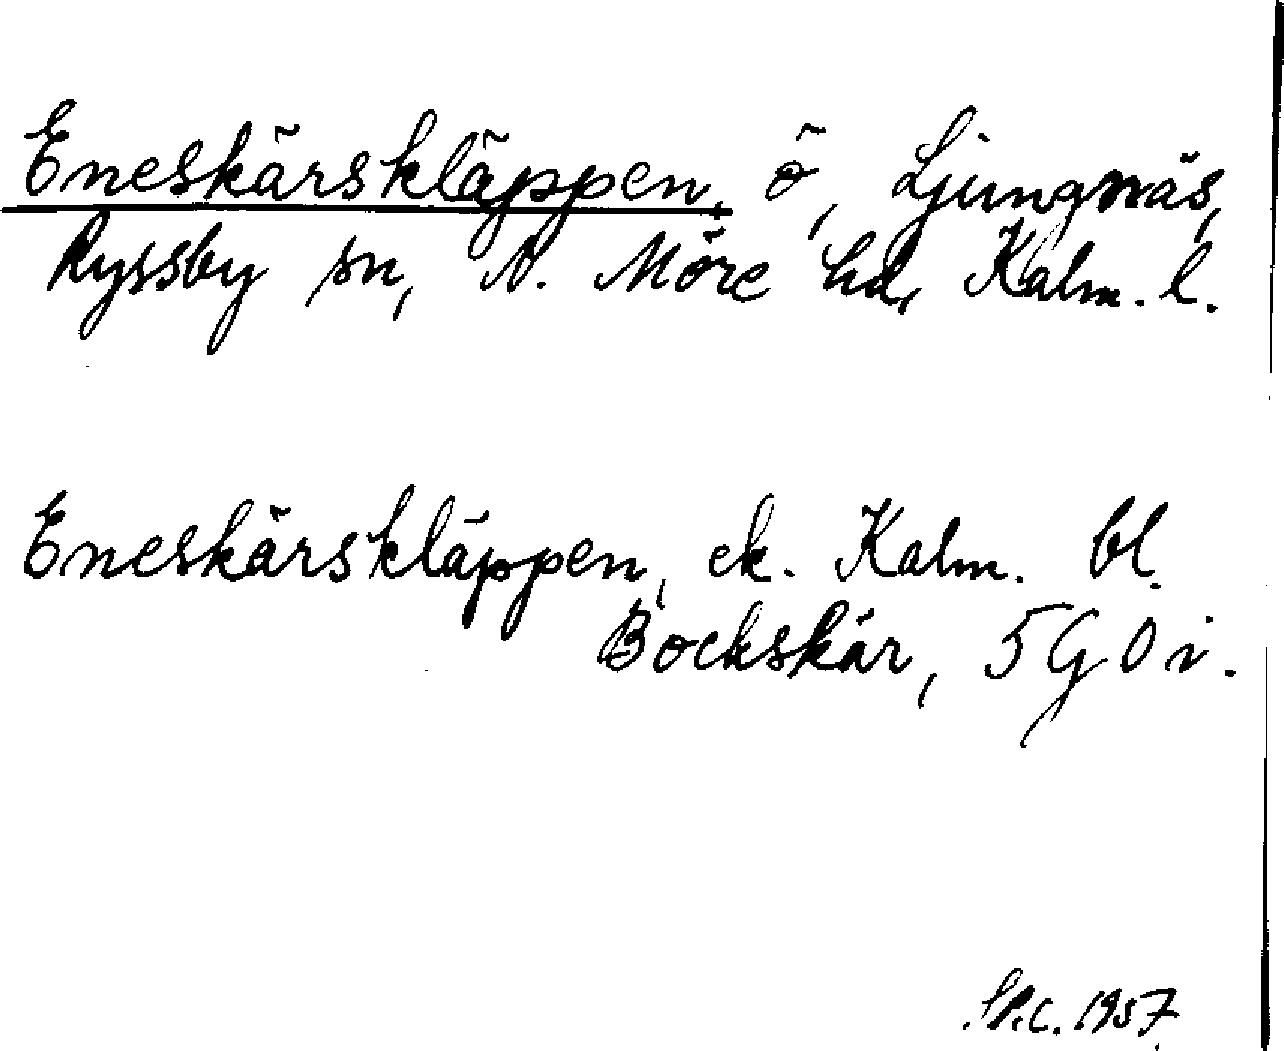 Eneskärskläppen, ö, Ljungnäs,
Ryssby sn, N. Möre hd, Kalm. l.
Eneskärskläppen, ek. Kalm. bl.
Bockskär, 5 G 0 i.
1957